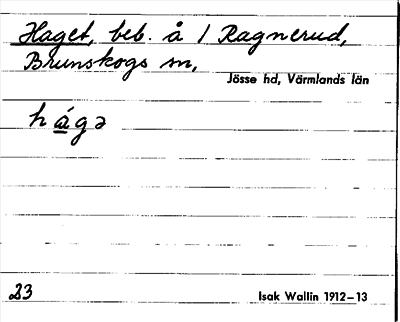 Haget, beb. å 1 Ragnerud,
Brunskogs sn,
Jösse hd, Värmlands län
hágə
23
Isak Wallin 1912–13